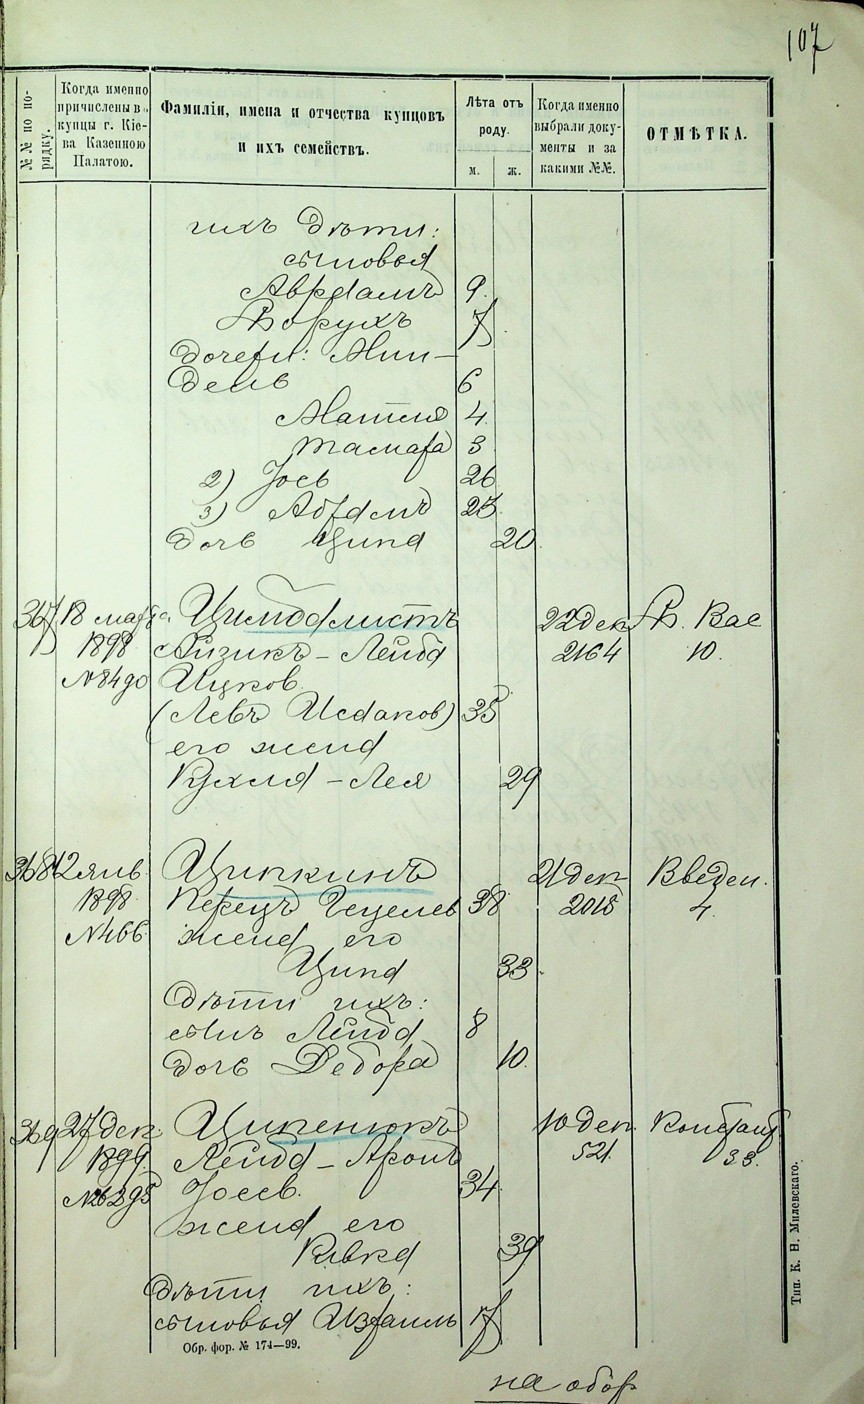 107
№№ по порядку.
Когда именно причислены в купцы г. Кіева Казенною Палатою.
Фамиліи, имена и отчества купцовъ и ихъ семействъ.
Лѣта отъ роду.
м. ж.
Когда именно выбрали документы и за какими №№.
ОТМѢТКА.
ихъ дѣти:
сыновья
Авраамъ 9.
Борухъ 7.
дочери: Мин-
дель 6
Матля 4
Тамара 3
2) Іось 26
3) Абрамъ 23
дочь Ципа 20
367 18 марта Цимбалистъ 22 дек Б. Вас
1898 Айзикъ-Лейба 2164 10.
№8490 Ицков.
(Левъ Исааков) 35
его жена
Рухля-Лея 29
368 12 янв. Ципкинъ 21 дек Введен.
1898 Перецъ Гецелев 38 2015 4.
№466 жена его
Ципа 33
Дѣти ихъ:
сынъ Лейба 8
дочь Дебора 10.
369 27 дек. Ципенюкъ 10 дек. Констант
1899. Лейба-Аронъ 521. 33.
№26295 Іосев. 34
жена его
Ривка 39
дѣти ихъ:
сыновья Израиль 17
Обр. фор. № 174—99.
на обор
Тип. К. Н. Милевскаго.